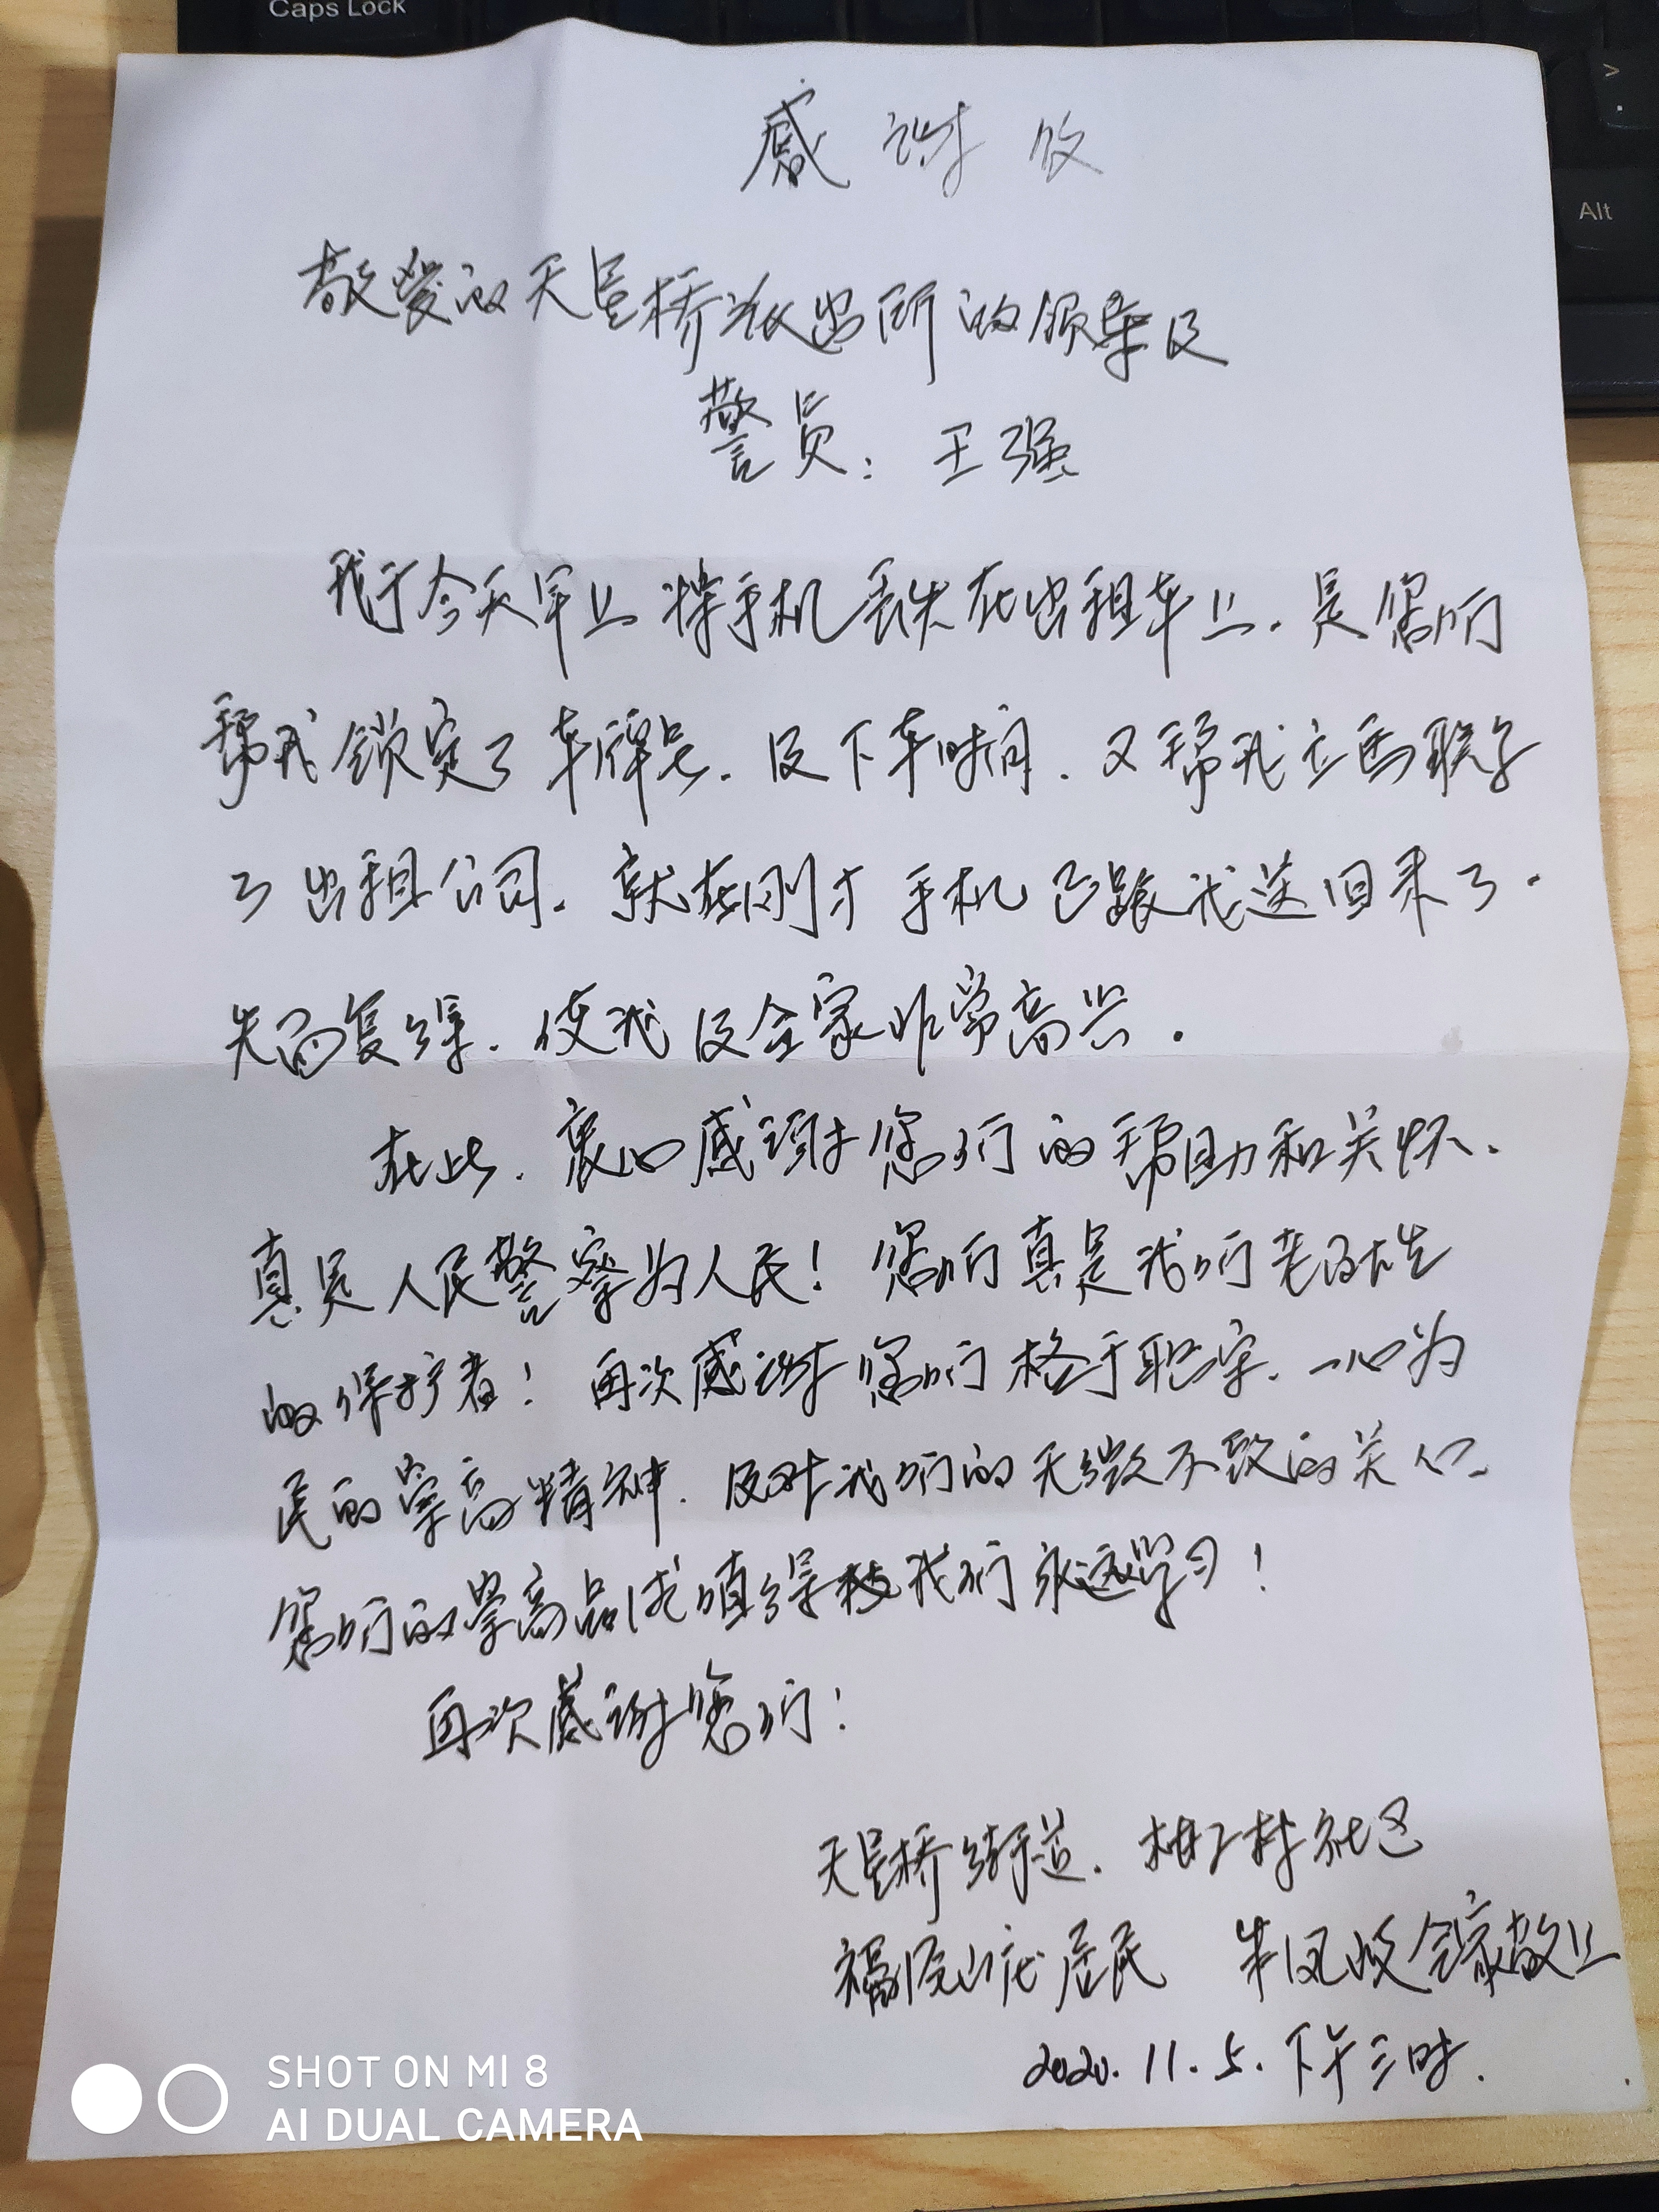 Caps Lock
>
.
Alt
感谢
敬爱的天星桥派出所的领导及
警员：王强
我于今天早上将手机丢失在出租车上.是您们
帮我锁定了车牌号.及下车时间.又帮我立马联系
了出租公司.就在刚才手机已跟我送回来了.
失而复得.使我及全家非常高兴.
在此.衷心感谢您们的帮助和关怀.
真是人民警察为人民！您们真是我们老百姓
的保护者！再次感谢您们格于职守.一心为
民的崇高精神.及对我们的无微不致的关心.
您们的崇高品德值得我们永远学习！
再次感谢您们！
天星桥街道.柑子村社区
福 山庄居民 全家敬上
2020.11.5.下午三时.
SHOT ON MI 8
AI DUAL CAMERA